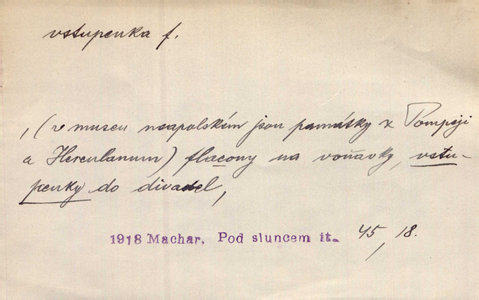 vstupenka f.
, (v museu neapolském jsou památky z Pompeji
a Herculanum) flacony na voňavky, vstu-
penky do divadel,
1918 Machar, Pod sluncem it. 45, 18.